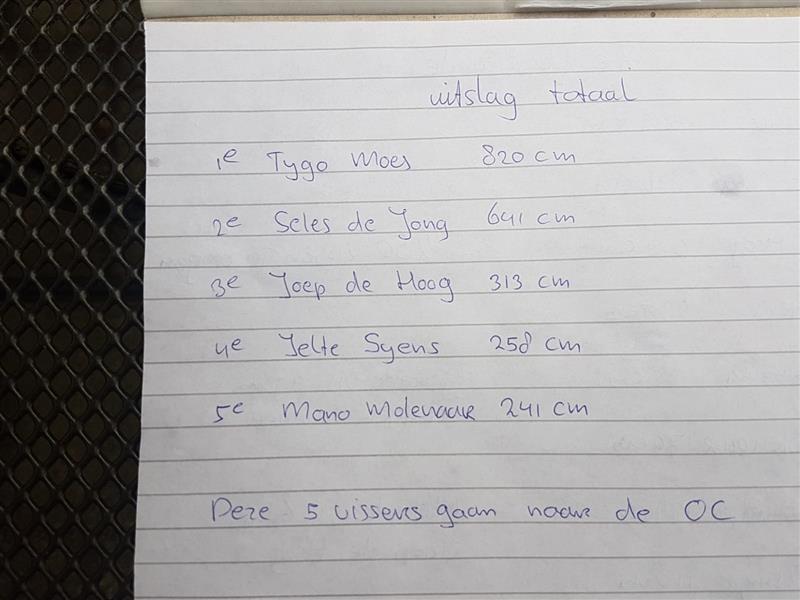 uitslag totaal
1e Tygo Moes 820 cm
2e Seles de Jong 641 cm
3e Joep de Hoog 313 cm
4e Jelte Syens 258 cm
5e Mano Molenaar 241 cm
Deze 5 vissers gaan naar de OC